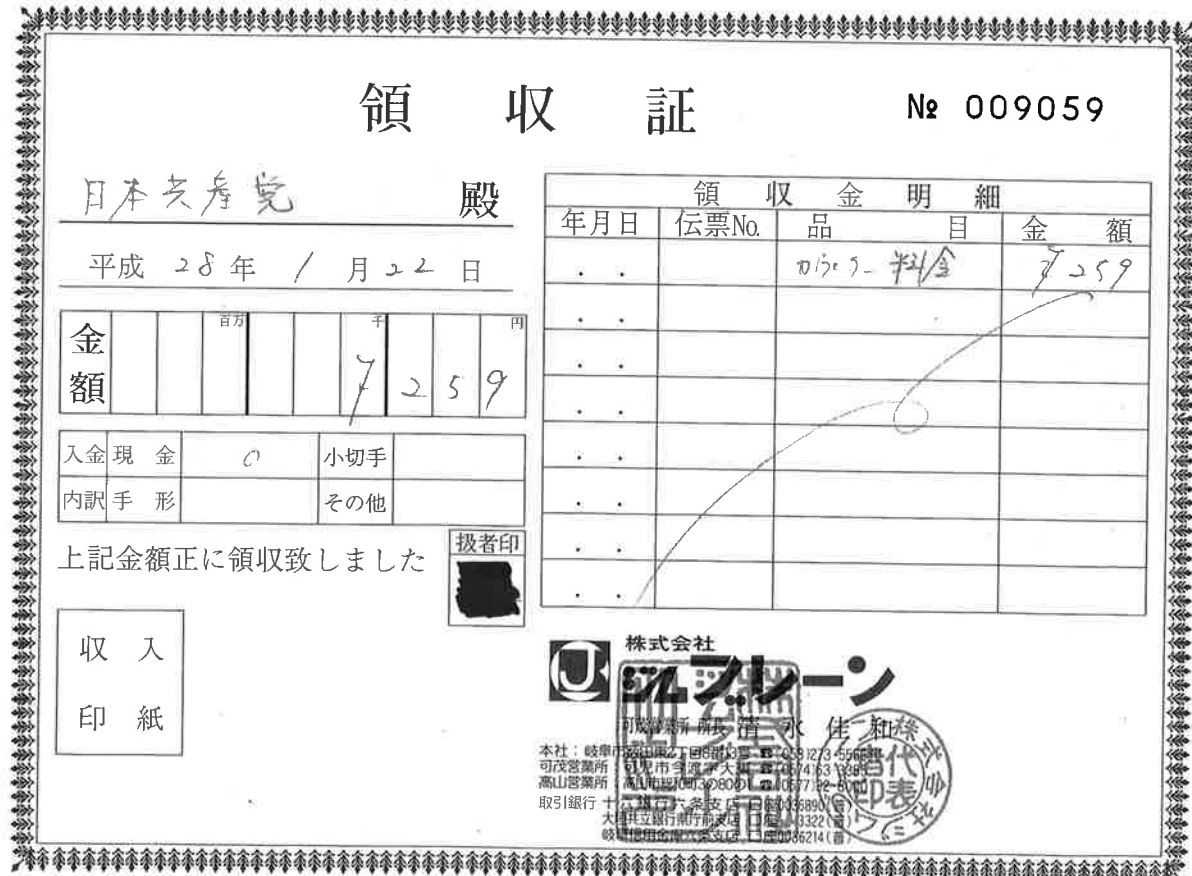 領収証
№ 009059
日本共産党 殿
平成 28 年 1 月 22 日
金額 百万 千 円
7 2 5 9
入金 現金 0 小切手
内訳 手形 その他
上記金額正に領収致しました
扱者印
収入
印紙
領収金明細
年月日 伝票No. 品目 金額
. . カウンター料金 7259
. .
. .
. .
. .
. .
. .
. .
株式会社
ジェブレーン
可茂営業所 所長 清水佳和
本社:岐阜市
可茂営業所:可児市今渡字大
高山営業所:高山市
取引銀行 十六銀行六条支店
大垣共立銀行県庁前支店
岐阜信用金庫六条支店